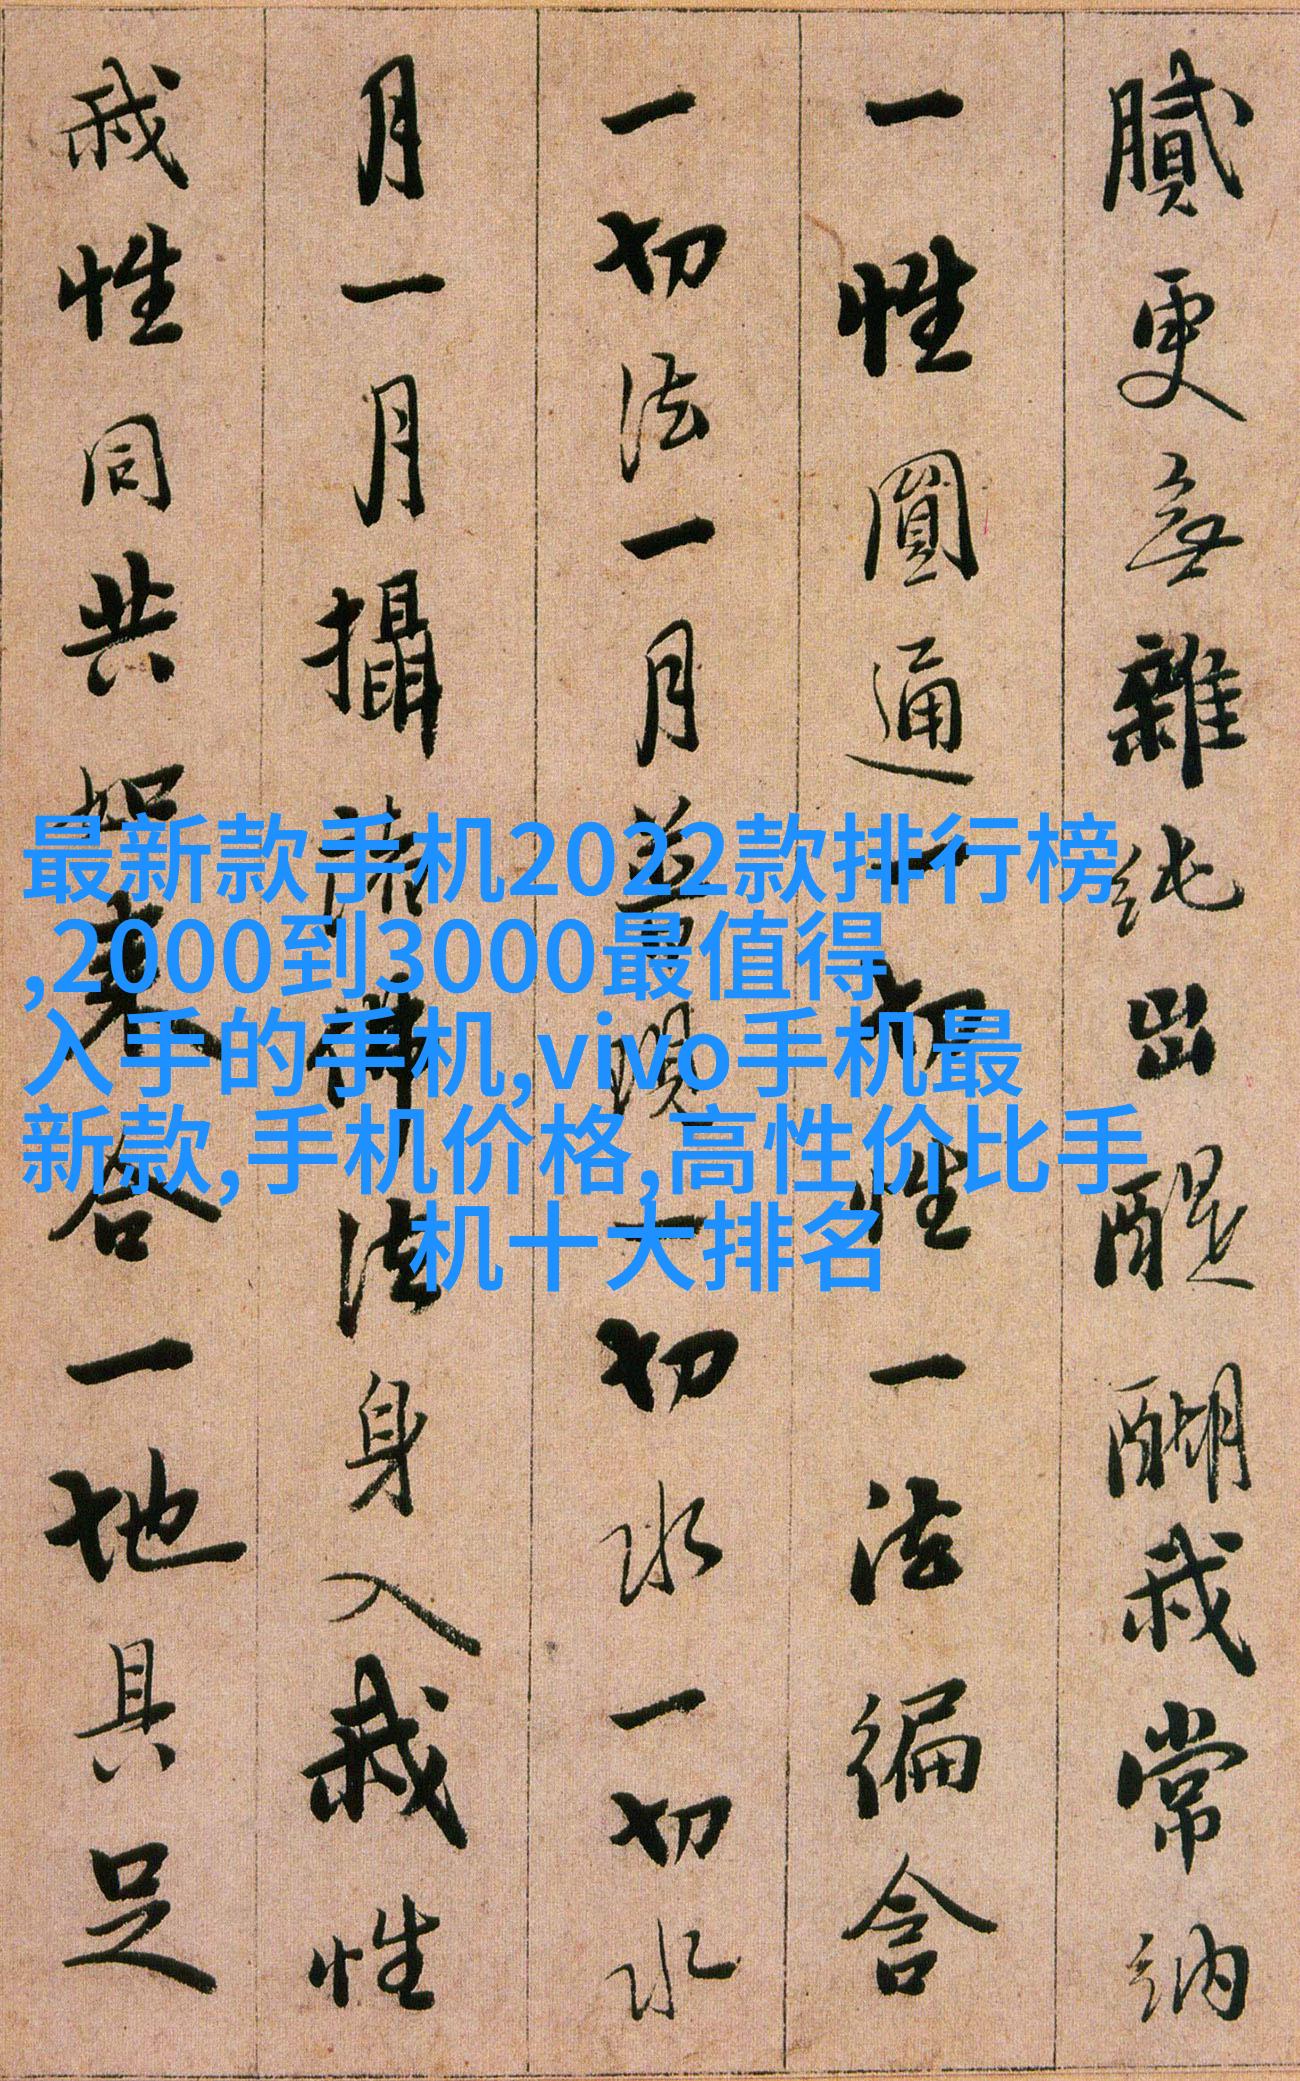 膩更無雜純出醍醐我常納
一性圓通一切性一法徧含
一切法一月普現一切水一切水
月一月攝諸佛法身入我性
我性同共如來合一地具足
最新款手机2022款排行榜
,2000到3000最值得
入手的手机,vivo手机最
新款,手机价格,高性价比手
机十大排名